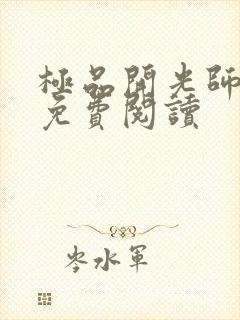 極品開光師
免費閱讀
岑水軍